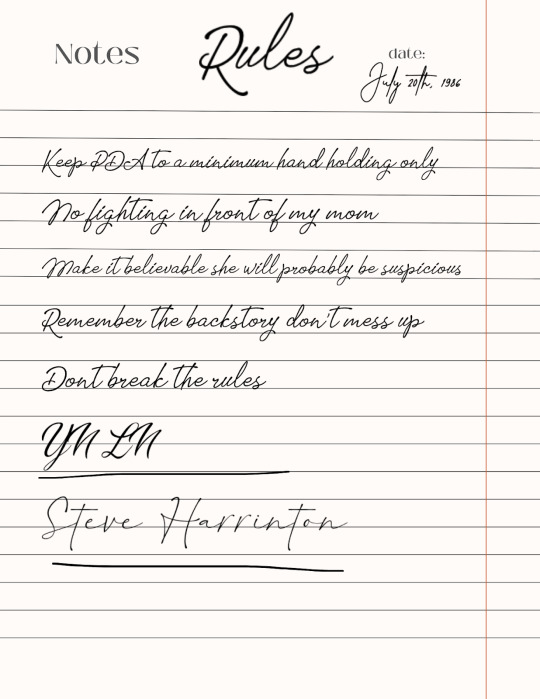 Notes
Rules
date:
July 20th, 1986
Keep PDA to a minimum hand holding only
No fighting in front of my mom
Make it believable she will probably be suspicious
Remember the backstory don't mess up
Dont break the rules
YN LN
Steve Harrinton